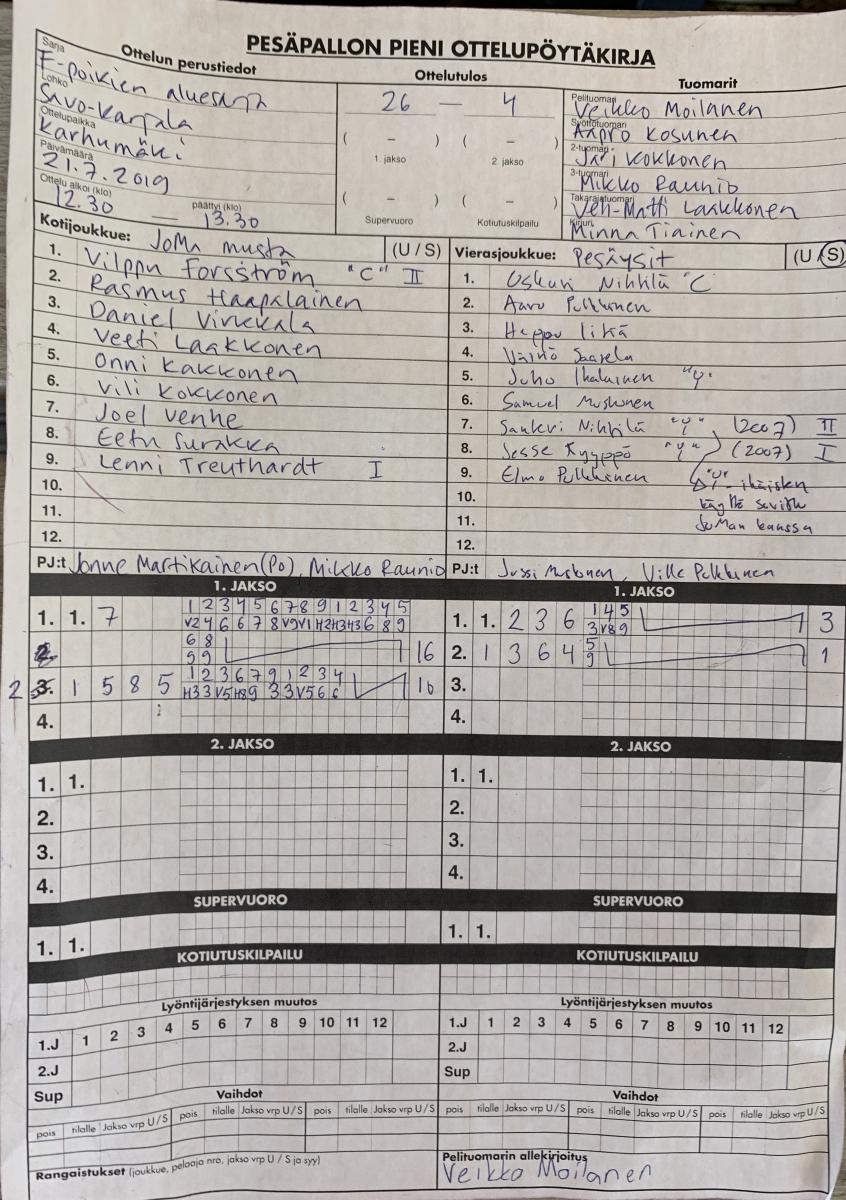 PESÄPALLON PIENI OTTELUPÖYTÄKIRJA
Ottelun perustiedot
Sarja
F-poikien aluesarja
Lohko
Savo-Karjala
Ottelupaikka
Karhumäki
Päivämäärä
21.7.2019
Ottelu alkoi (klo) päättyi (klo)
12.30 — 13.30
Ottelutulos
26 — 4
( – ) ( – )
1. jakso 2. jakso
( – ) ( – )
Supervuoro Kotiutuskilpailu
Tuomarit
Pelituomari
Veikko Moilanen
Syöttötuomari
Aapro Kosunen
2-tuomari
Jari Kokkonen
3-tuomari
Mikko Raunio
Takarajatuomari
Veli-Matti Laakkonen
Kirjuri
Minna Tiainen
Kotijoukkue: JoMa musta (U / S)
1. Vilppu Forsström "C" II
2. Rasmus Haapalainen
3. Daniel Virkkala
4. Veeti Laakkonen
5. Onni Kakkonen
6. Vili Kokkonen
7. Joel Venhe
8. Eetu Surakka
9. Lenni Treuthardt I
10.
11.
12.
PJ:t Jonne Martikainen (Po), Mikko Raunio
Vierasjoukkue: Pesäysit (U / S)
1. Oskari Nihtilä "C
2. Aaro Pulkkinen
3. Heppu
4. Väinö Saarela
5. Juho Ihalainen "Y"
6. Samuel Mustonen
7. Santeri Nihtilä "Y" (2007) II
8. Jesse Kyyppö "Y" (2007) I
9. Elmo Pulkkinen "Y"-ikäisten
10. käyttö sovittu
11. JoMan kanssa
12.
PJ:t Jussi Mustonen, Ville Pulkkinen
1. JAKSO
1. 1. 7 1 2 3 4 5 6 7 8 9 1 2 3 4 5
V2 4 6 6 7 8 V9 V1 H2 H3 H3 6 8 9
6 8
9 9 16
2. 1 5 8 5 1 2 3 6 7 9 1 2 3 4
H3 3 V5 H8 9 3 3 V5 6 6 10
4.
1. JAKSO
1. 1. 2 3 6 1 4 5
3 V8 9 3
2. 1 3 6 4 5
9 1
3.
4.
2. JAKSO
1. 1.
2.
3.
4.
2. JAKSO
1. 1.
2.
3.
4.
SUPERVUORO
1. 1.
SUPERVUORO
1. 1.
KOTIUTUSKILPAILU
KOTIUTUSKILPAILU
Lyöntijärjestyksen muutos
1.J 1 2 3 4 5 6 7 8 9 10 11 12
2.J
Sup
Lyöntijärjestyksen muutos
1.J 1 2 3 4 5 6 7 8 9 10 11 12
2.J
Sup
Vaihdot
pois tilalle Jakso vrp U / S pois tilalle Jakso vrp U / S pois tilalle Jakso vrp U / S
Vaihdot
pois tilalle Jakso vrp U / S pois tilalle Jakso vrp U / S pois tilalle Jakso vrp U / S
Rangaistukset (joukkue, pelaaja nro, jakso vrp U / S ja syy)
Pelituomarin allekirjoitus
Veikko Moilanen